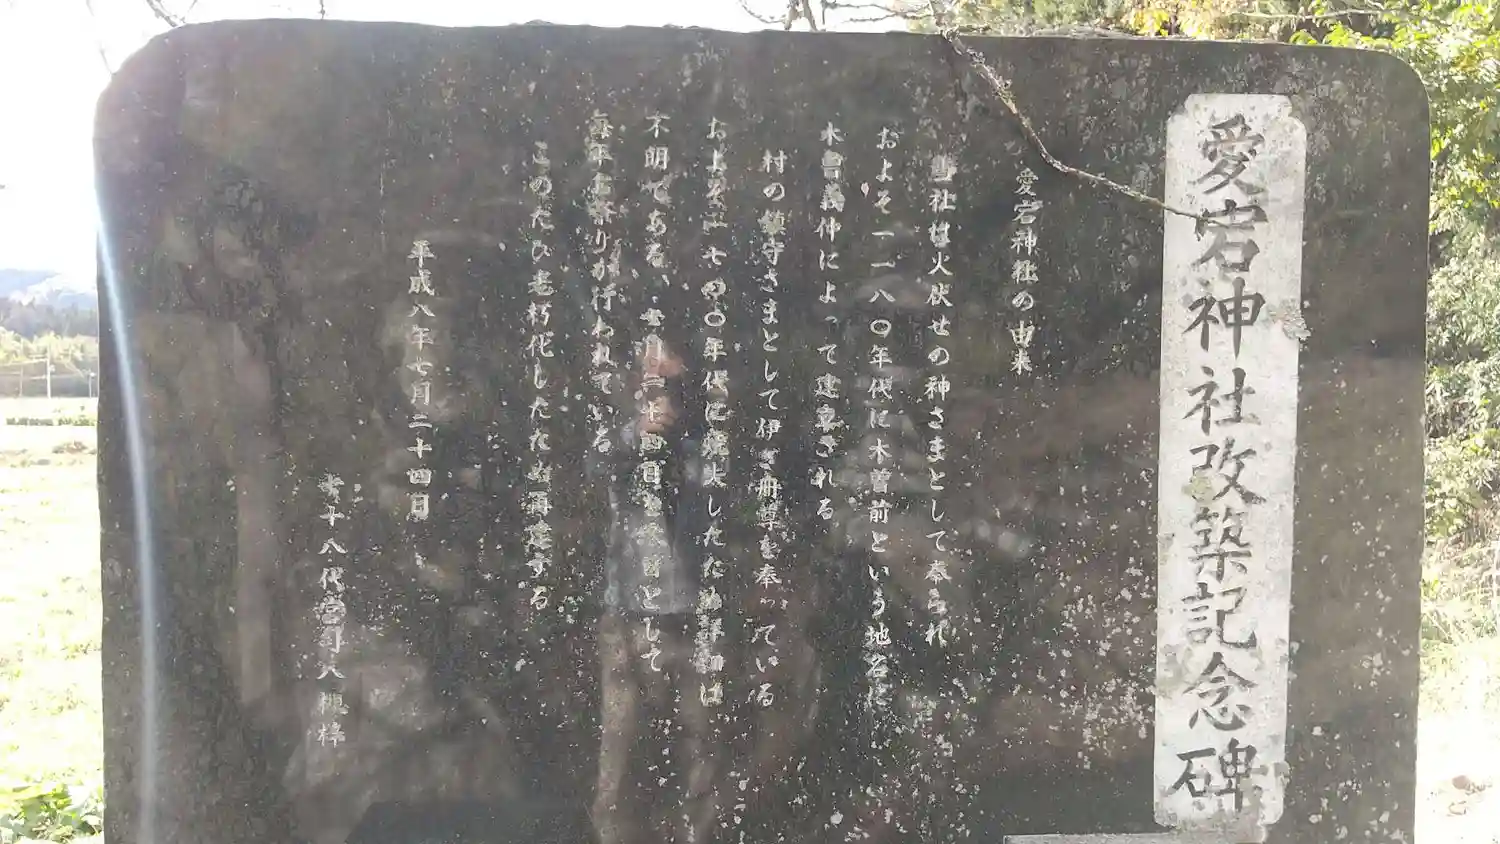 愛宕神社改築記念碑
愛宕神社の由来
当社は火伏せの神さまとして奉られ
およそ一一八〇年代に木曽前という地名に
木曽義仲によって建立される
村の鎮守さまとして伊ざ冊尊を奉っている
およそ一七〇〇年代に焼失したため詳細は
不明である、七月二十四日を祭日として
毎年お祭りが行われている
このたび老朽化したため再建する
平成八年七月二十四日
十八代宮司大